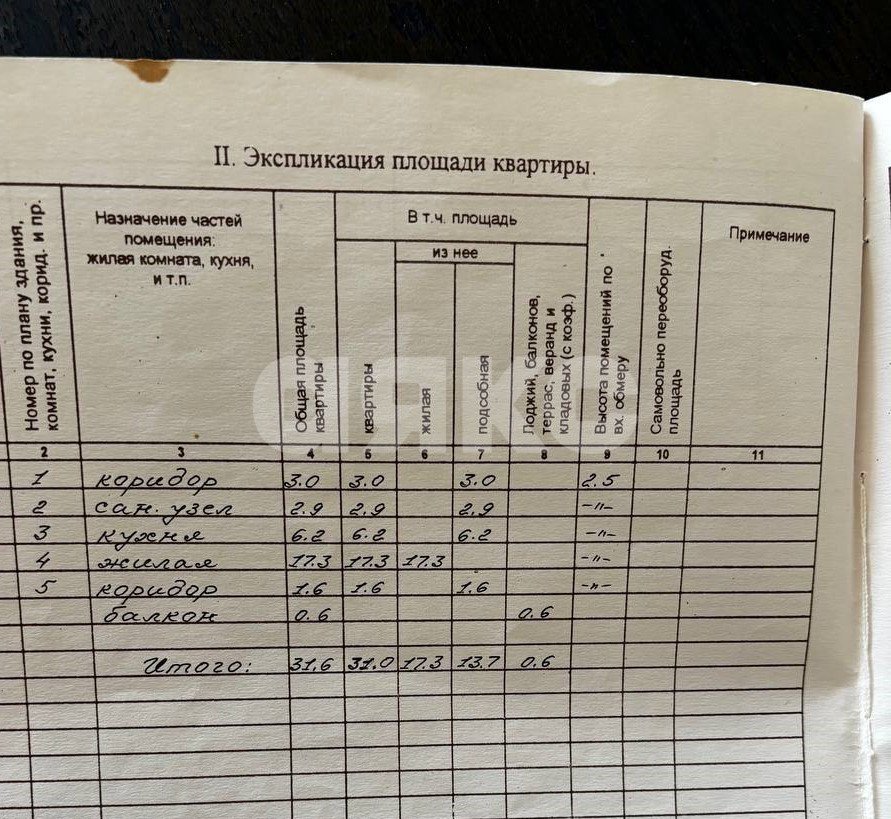 II. Экспликация площади квартиры.
Номер по плану здания, комнат, кухни, корид. и пр.
Назначение частей помещения: жилая комната, кухня, и т.п.
Общая площадь квартиры
В т.ч. площадь
квартиры
из нее
жилая
подсобная
Лоджий, балконов, террас, веранд и кладовых (с коэф.)
Высота помещений по вх. обмеру
Самовольно переоборуд. площадь
Примечание
2 3 4 5 6 7 8 9 10 11
1 коридор 3.0 3.0 3.0 2.5
2 сан. узел 2.9 2.9 2.9 -"-
3 кухня 6.2 6.2 6.2 -"-
4 жилая 17.3 17.3 17.3 -"-
5 коридор 1.6 1.6 1.6 -"-
балкон 0.6 0.6
Итого: 31.6 31.0 17.3 13.7 0.6
аякс